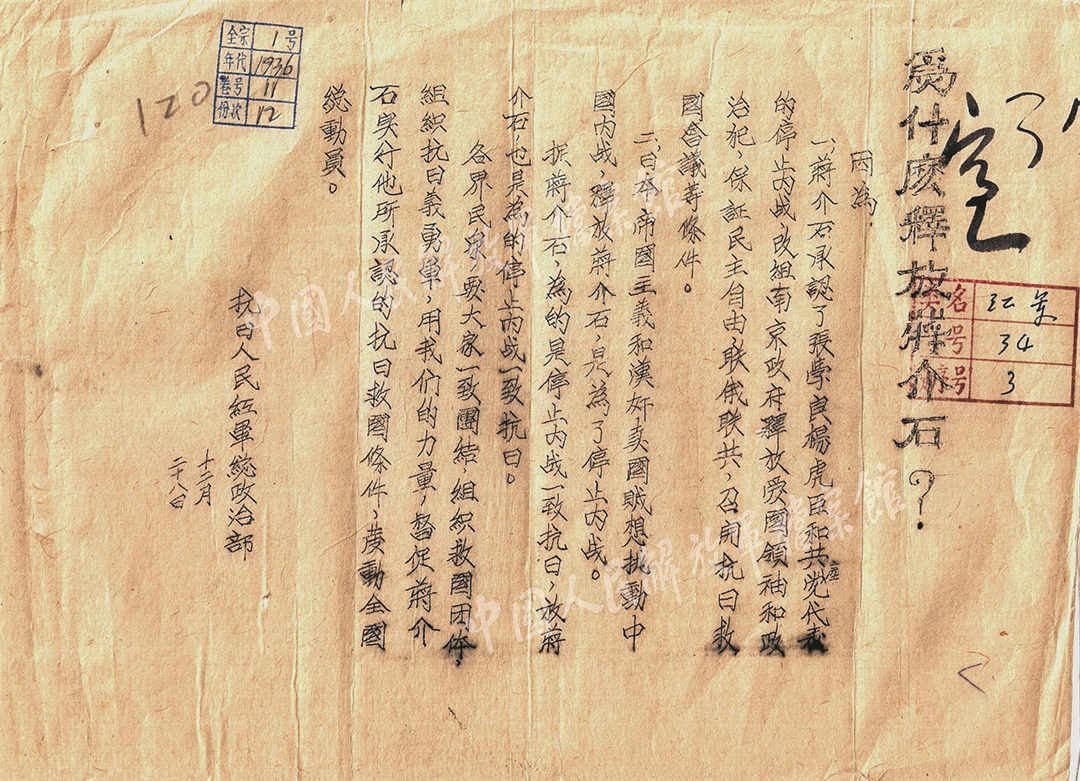 爲什庅釋放蔣介石？
因為
一、蔣介石承認了張學良楊虎臣和共党代表
的停止內战，改组南京政府釋放爱國領袖和政
治犯，保証民主自由，联俄联共，召開抗日救
國會議等條件。
二、日本帝國主義和漢奸卖國贼想挑動中
國内战，釋放蔣介石，是為了停止内战。
捉蔣介石，為的是停止内战一致抗日，放蔣
介石，也是為的停止内战一致抗日。
各界民眾，要大家一致團結，組織救國团体，
組織抗日義勇軍，用我们的力量，督促蔣介
石实行他所承認的抗日救國條件，發動全國
總動員。
抗日人民紅軍總政治部
十二月
二十八日
全宗 1号
年代 1936
卷号 11
份次 12
120
名 红军
号 34
号 3
中国人民解放军档案馆
中国人民解放军档案馆